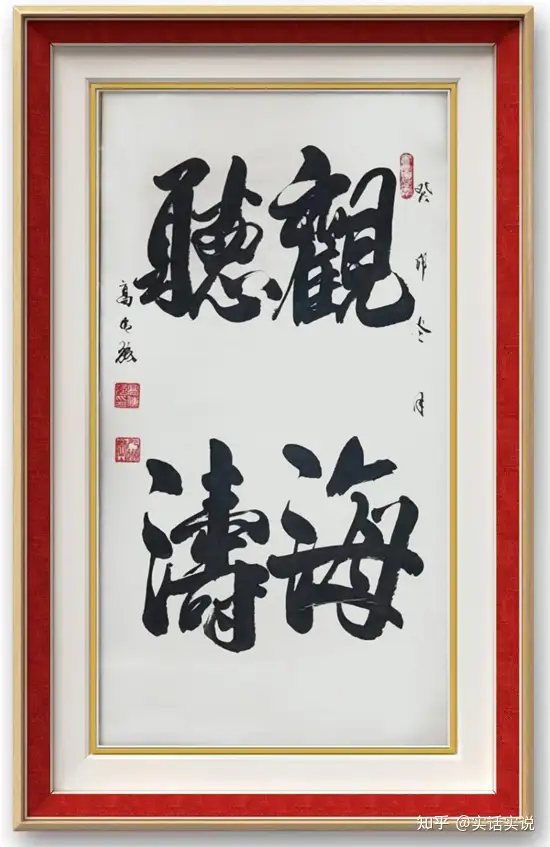 癸卯冬月
觀海
聽濤
高
知乎 @实话实说